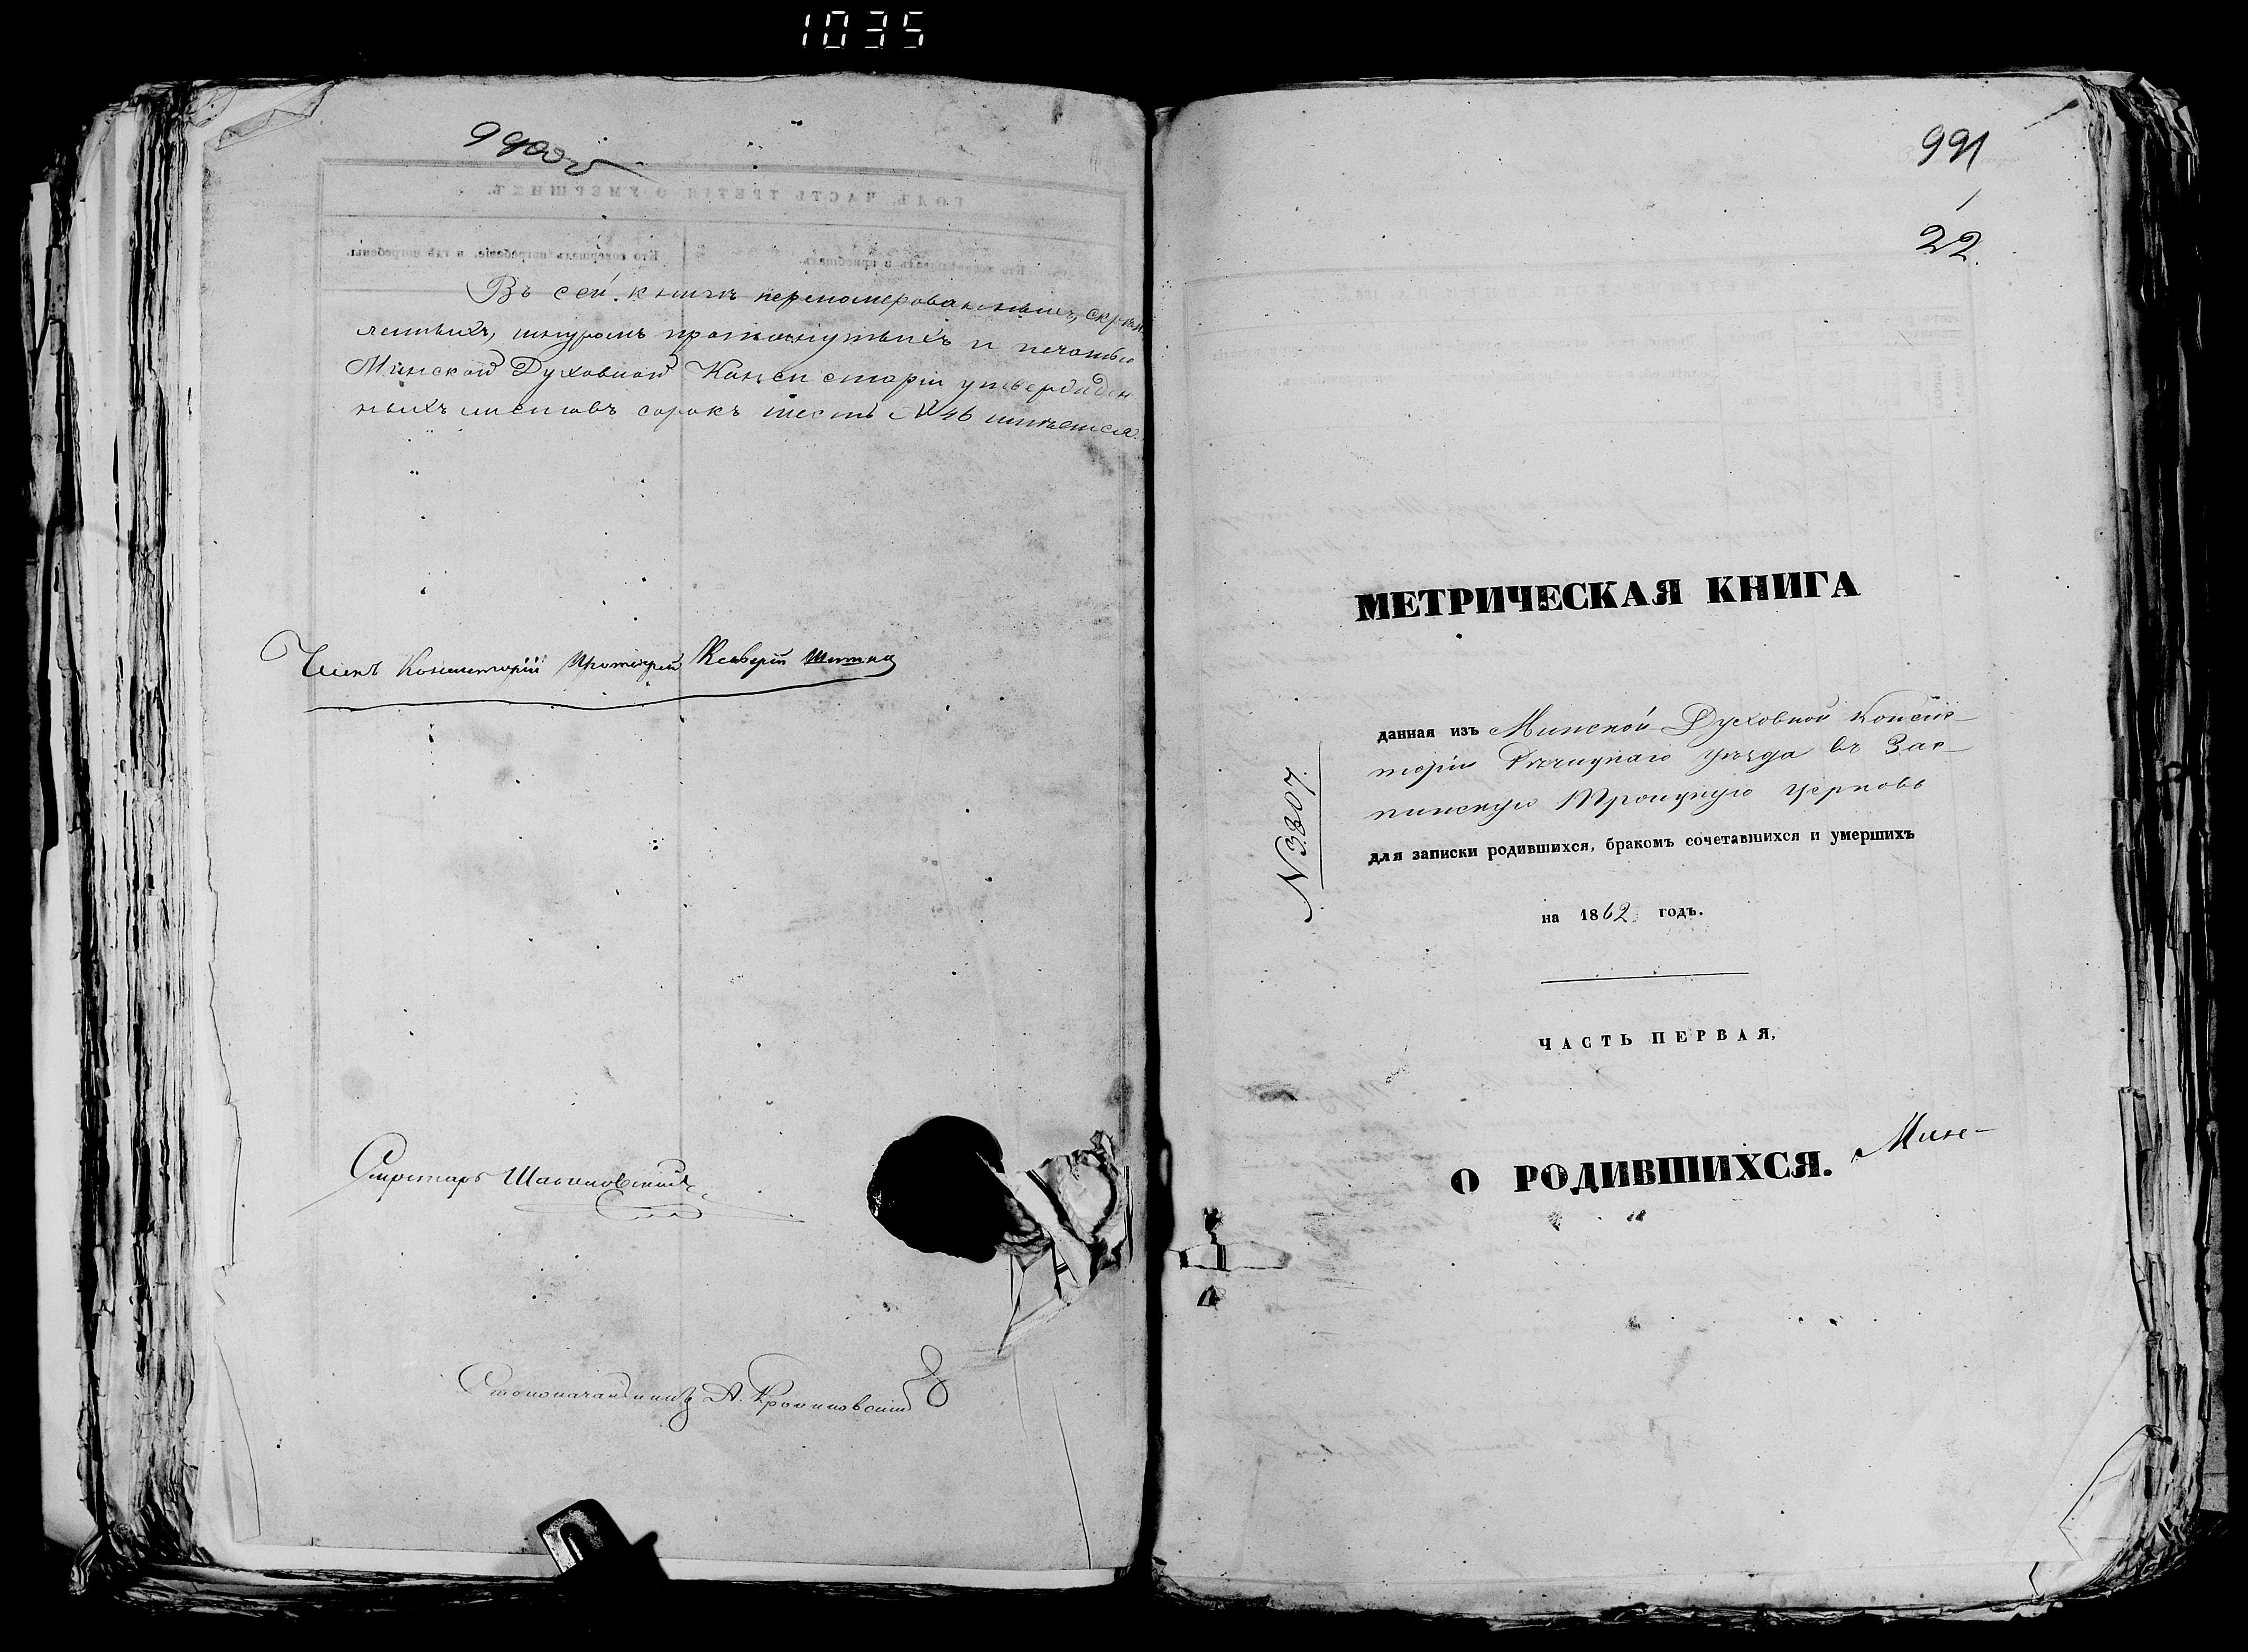 1035
990об
Въ сей книгѣ переномерованныхъ, скрѣп
ленныхъ, шнуромъ протянутыхъ и печатью
Минской Духовной Консисторіи утвержден
ныхъ листовъ сорокъ шесть № 46 имѣется.
Членъ Консисторіи Протоіерей Ксаверій
Секретарь
Столоначальникъ А.
991
22.
МЕТРИЧЕСКАЯ КНИГА
данная изъ Минской Духовной Консис-
торіи Рѣчицкаго уѣзда въ Зас-
пинскую Троицкую церковь
для записки родившихся, бракомъ сочетавшихся и умершихъ
на 1862 годъ.
№ 3807.
ЧАСТЬ ПЕРВАЯ,
О РОДИВШИХСЯ.
Мин-